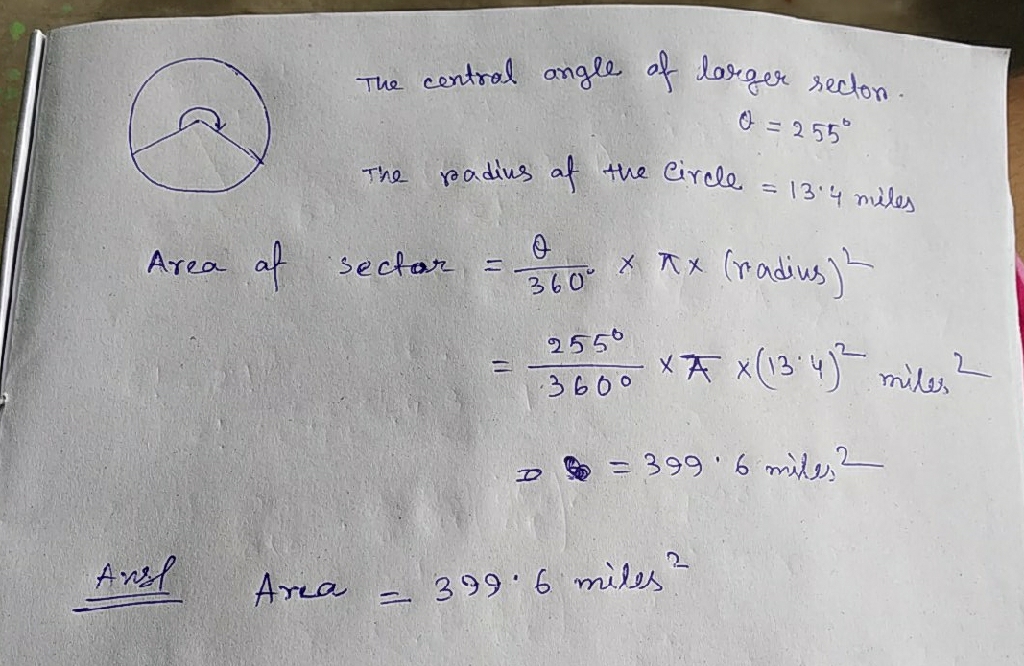 The central angle of larger sector.
θ = 255°
The radius of the Circle = 13.4 miles
Area of sector = θ/360° × π × (radius)²
= 255°/360° × π × (13.4)² miles²
= 399.6 miles²
Ans/ Area = 399.6 miles²